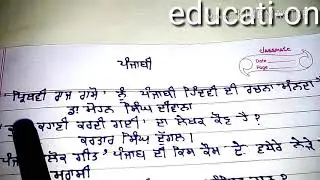 educati-on
classmate
Date
Page
ਪੰਜਾਬੀ
ਪ੍ਰਿਥਵੀ ਰਾਜ ਰਾਸੋ' ਨੂੰ ਪੰਜਾਬੀ ਹਿੰਦਵੀ ਦੀ ਰਚਨਾ ਮੰਨਦਾ
ਡਾ ਮੋਹਨ ਸਿੰਘ ਦੀਵਾਨਾ
ਕਹਾਣੀ ਕਰਦੀ ਗਈ' ਦਾ ਲੇਖਕ ਕੌਣ ਹੈ ?
ਕਰਤਾਰ ਸਿੰਘ ਦੁੱਗਲ।
ਲੋਕ ਗੀਤ' ਪੰਜਾਬ ਦੀ ਕਿਸ ਕੌਮ ਦੇ ਵਧੇਰੇ ਨੇੜੇ
ਮਰਾਸੀ